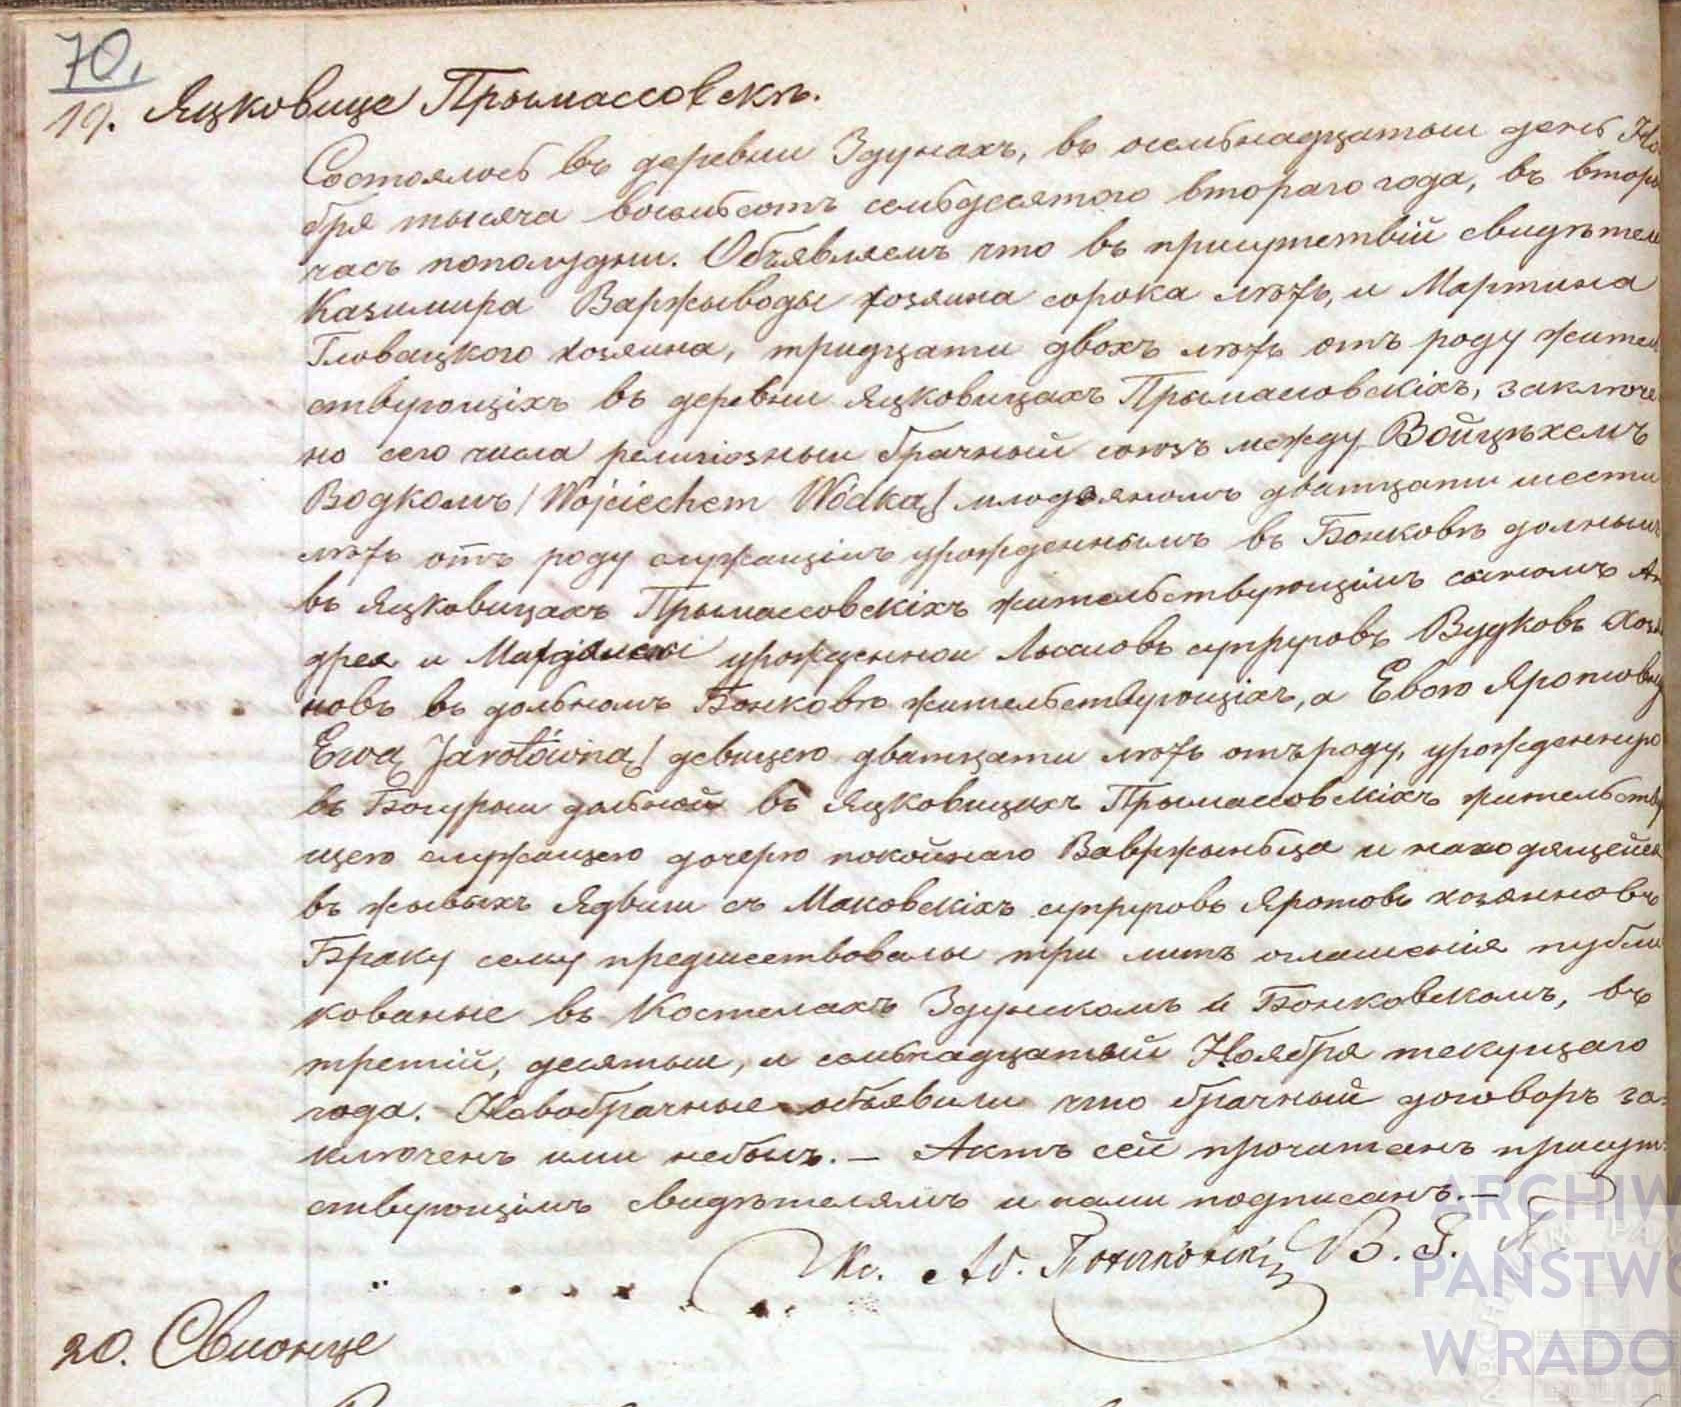 70,
19. Яцковице Прымассовскъ.
Состоялось въ деревни Здунахъ, въ осьмнадцатым день Но
бря тысяча восьмсотъ семьдесятого втораго года, въ втор
часъ пополудни. Объявляемъ что въ присутствій свидѣтел
Казимира Варжываоды хозяина сорока лѣтъ, и Мартина
Гловацкого хозяина, тридцати двохъ лѣтъ отъ роду жител
ствующіхъ въ деревни Яцковицахъ Прымасовскіхъ, заключе
но сего числа религіозный брачный союзъ между Войцѣхемъ
Водкомъ / Wojciechem Wódką / млодзяномъ дватцати шести
лѣтъ отъ роду служащімъ урожденнымъ въ Бонковѣ долным
въ Яцковицахъ Прымассовскіхъ жительствующімъ сыномъ Ан
дрея и Магдалены урожденной супруговъ Вудковъ Хозя
новъ въ дольномъ Бонковѣ жительствующіхъ, а Евою Яротовн
Ewą Jarotówną / девицею дватцати лѣтъ отъ роду, урожденную
въ дольной въ Яцковицахъ Прымассовскіхъ жительству
щею служащею дочерю покойнаго Вавржыньца и находящейся
въ жывыхъ Ядвиги съ Маковскіхъ супруговъ Яротовъ хозяиновъ
Браку сему предшествовалы три оглашенія публи
кованые въ Костелахъ Здунскомъ и Бонковскомъ, въ
третій, десятым, и семьнадцатый Ноября текущаго
года. Новобрачные объявили что брачный договоръ за-
ключенъ ими небылъ. — Актъ сей прочитанъ присут-
ствующімъ свидѣтелямъ и нами подписанъ. —
Кс. Ад. В. Г.
20. Свионце
ARCHIW
PAŃSTWO
W RADO